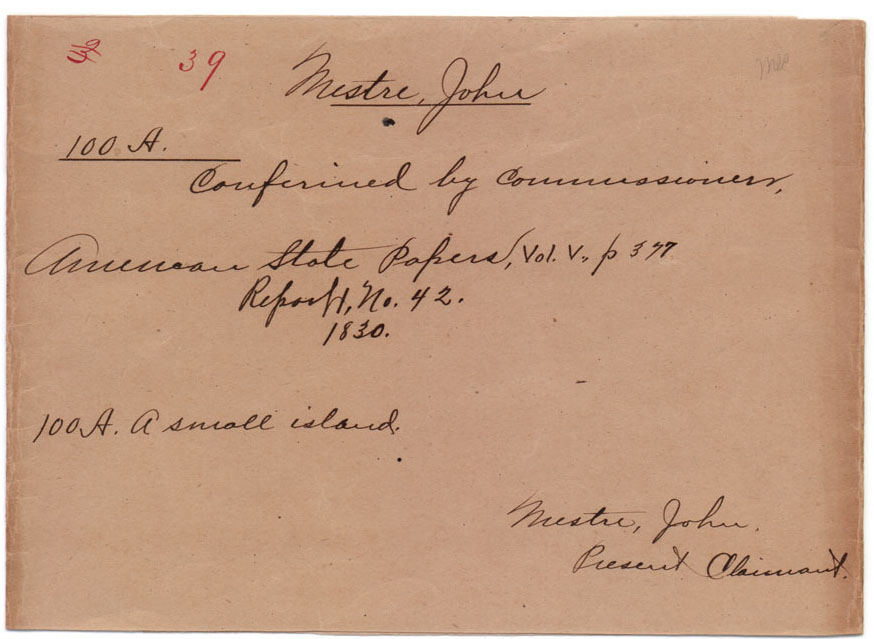 39
Mestre, John
100 A.
Confirmed by Commissioners,
American State Papers, Vol. V., p 377
Report, No. 42.
1830.
100 A. A small island.
Mestre, John.
Present Claimant.